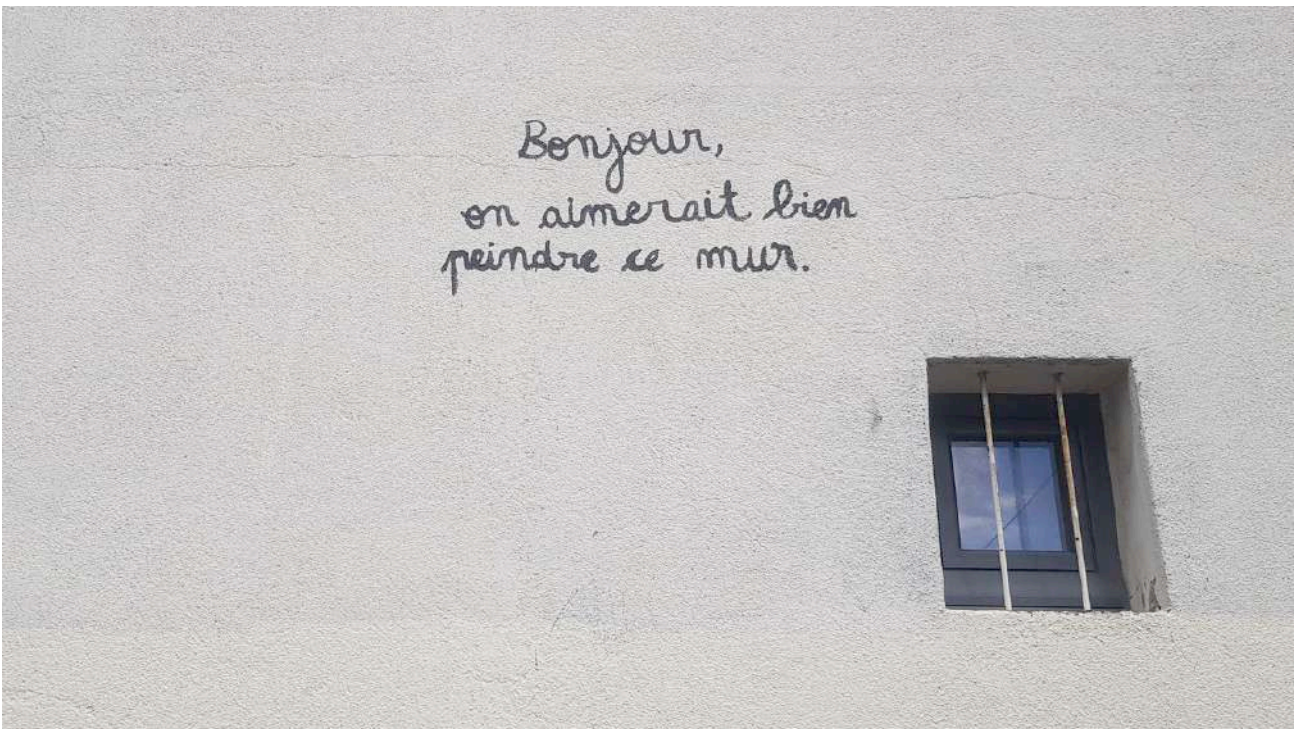 Bonjour,
on aimerait bien
peindre ce mur.